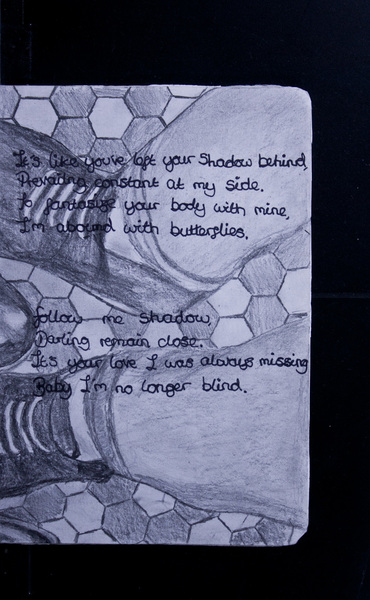 It's like you've left your Shadow behind,
Prevading constant at my side.
To fantasize your body with mine,
I'm abound with butterflies.
follow me Shadow,
Darling remain close.
It's your love I was always missing
Baby I'm no longer blind.